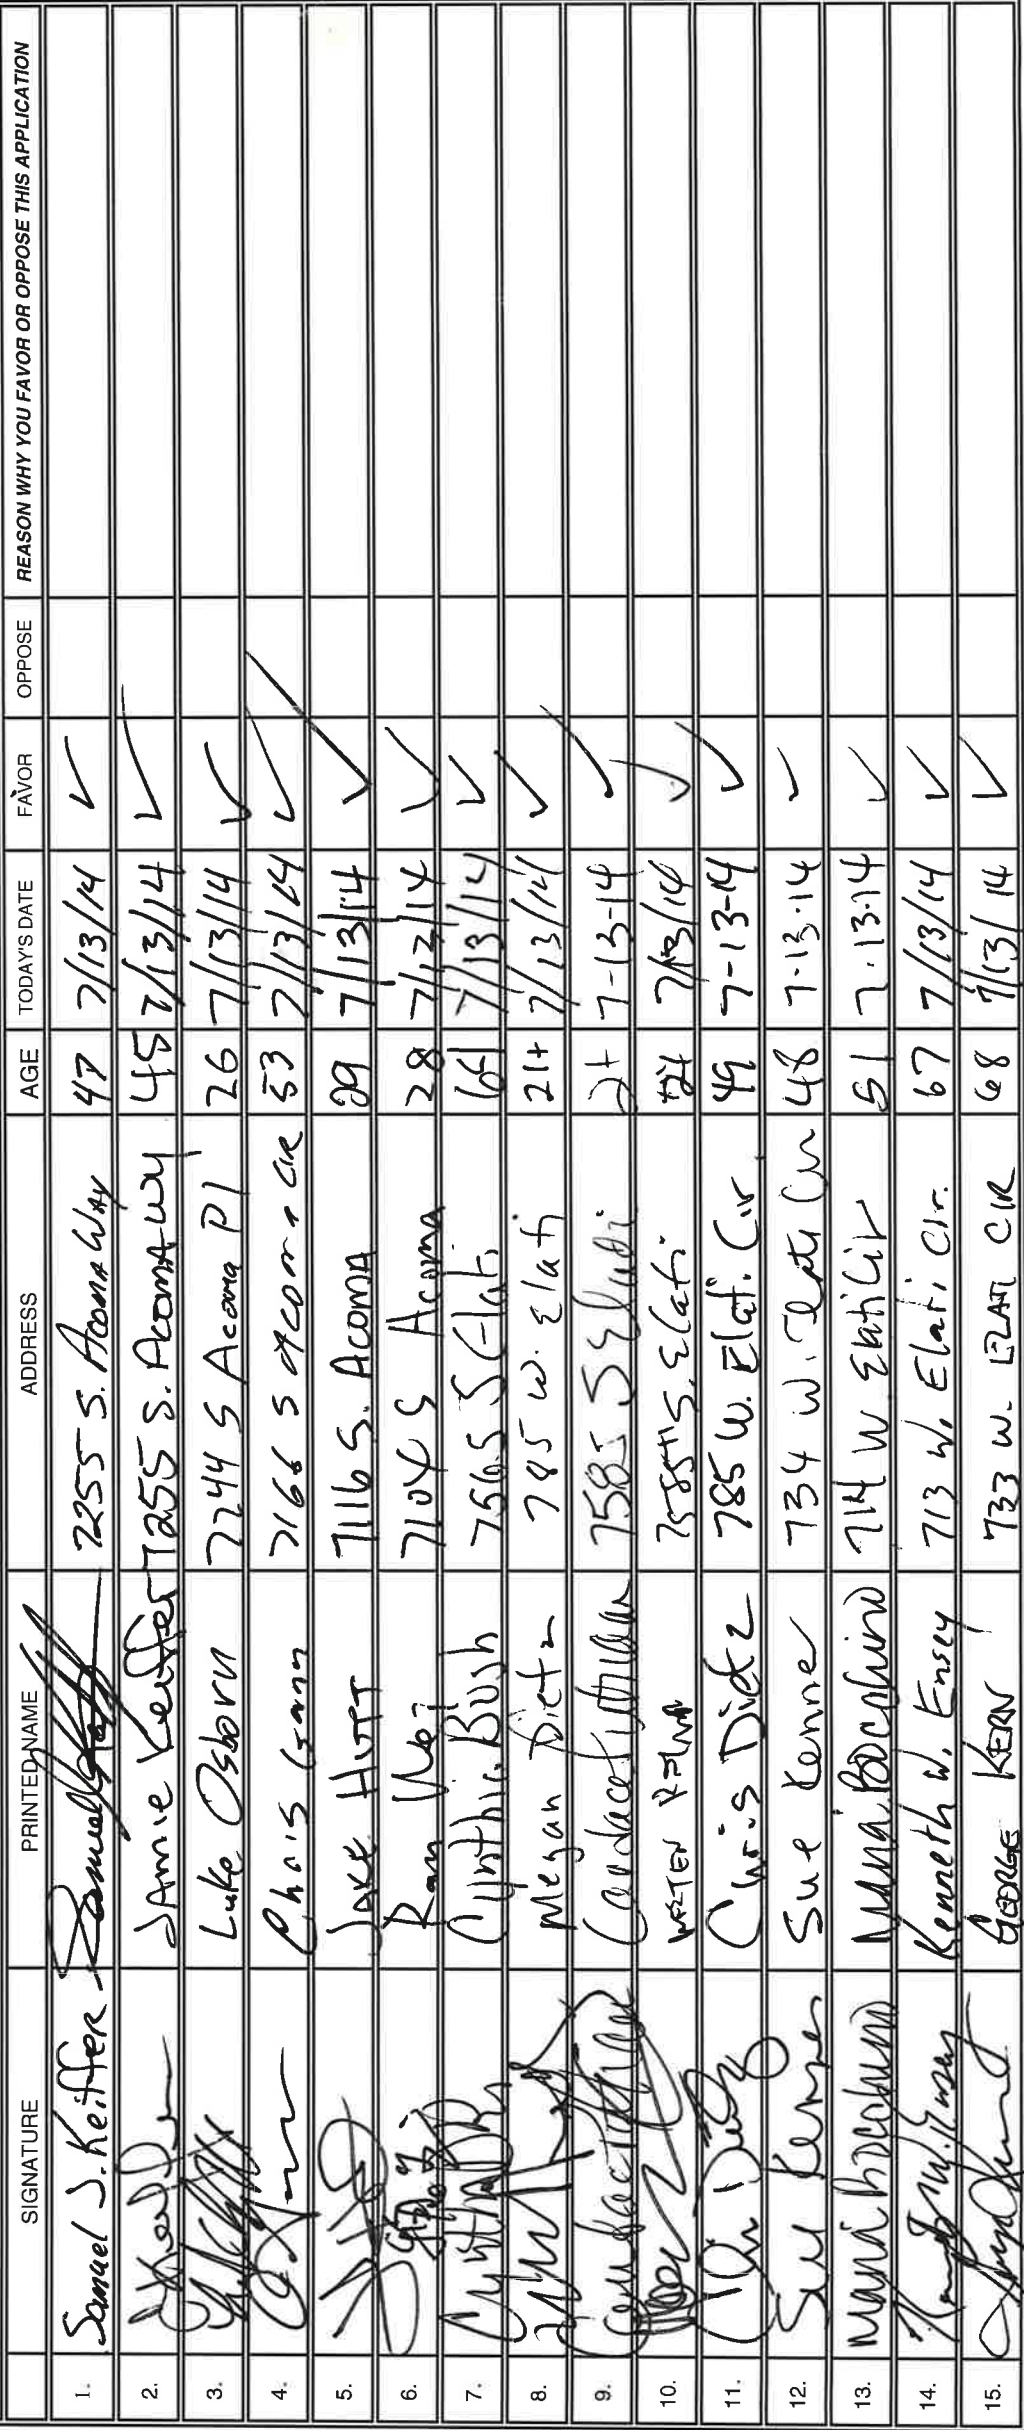 SIGNATURE PRINTED NAME ADDRESS AGE TODAY'S DATE FAVOR OPPOSE REASON WHY YOU FAVOR OR OPPOSE THIS APPLICATION
1. Samuel J. Keiffer 7255 S. Acoma Way 47 7/13/14 ✓
2. Jamie Keiffer 7255 S. Acoma Wy 45 7/13/14 ✓
3. Luke Osborn 7244 S Acoma Pl 26 7/13/14 ✓
4. Chris Gann 7166 S Acoma Cir 53 7/13/14 ✓
5. Jake Hutt 7116 S. Acoma 29 7/13/14 ✓
6. Ran Wei S Acoma 28 ✓
7. Cynthia Bush 7565 S Elati 7/13/14 ✓
8. Megan Dietz 785 W. Elati 21+ 7/13/14 ✓
9. Candace 7585 S Elati 21+ 7-13-14 ✓
10. S. Elati 7/13/14 ✓
11. Chris Dietz Chris Dietz 785 W. Elati Cir 49 7-13-14 ✓
12. Sue Kenne Sue Kenne 734 W. Elati Cir 48 7-13-14 ✓
13. 714 W Elati Cir 51 7-13-14 ✓
14. Kenneth W. Ensey 713 W. Elati Cir. 67 7/13/14 ✓
15. George Kern 733 W. Elati Cir 68 7/13/14 ✓